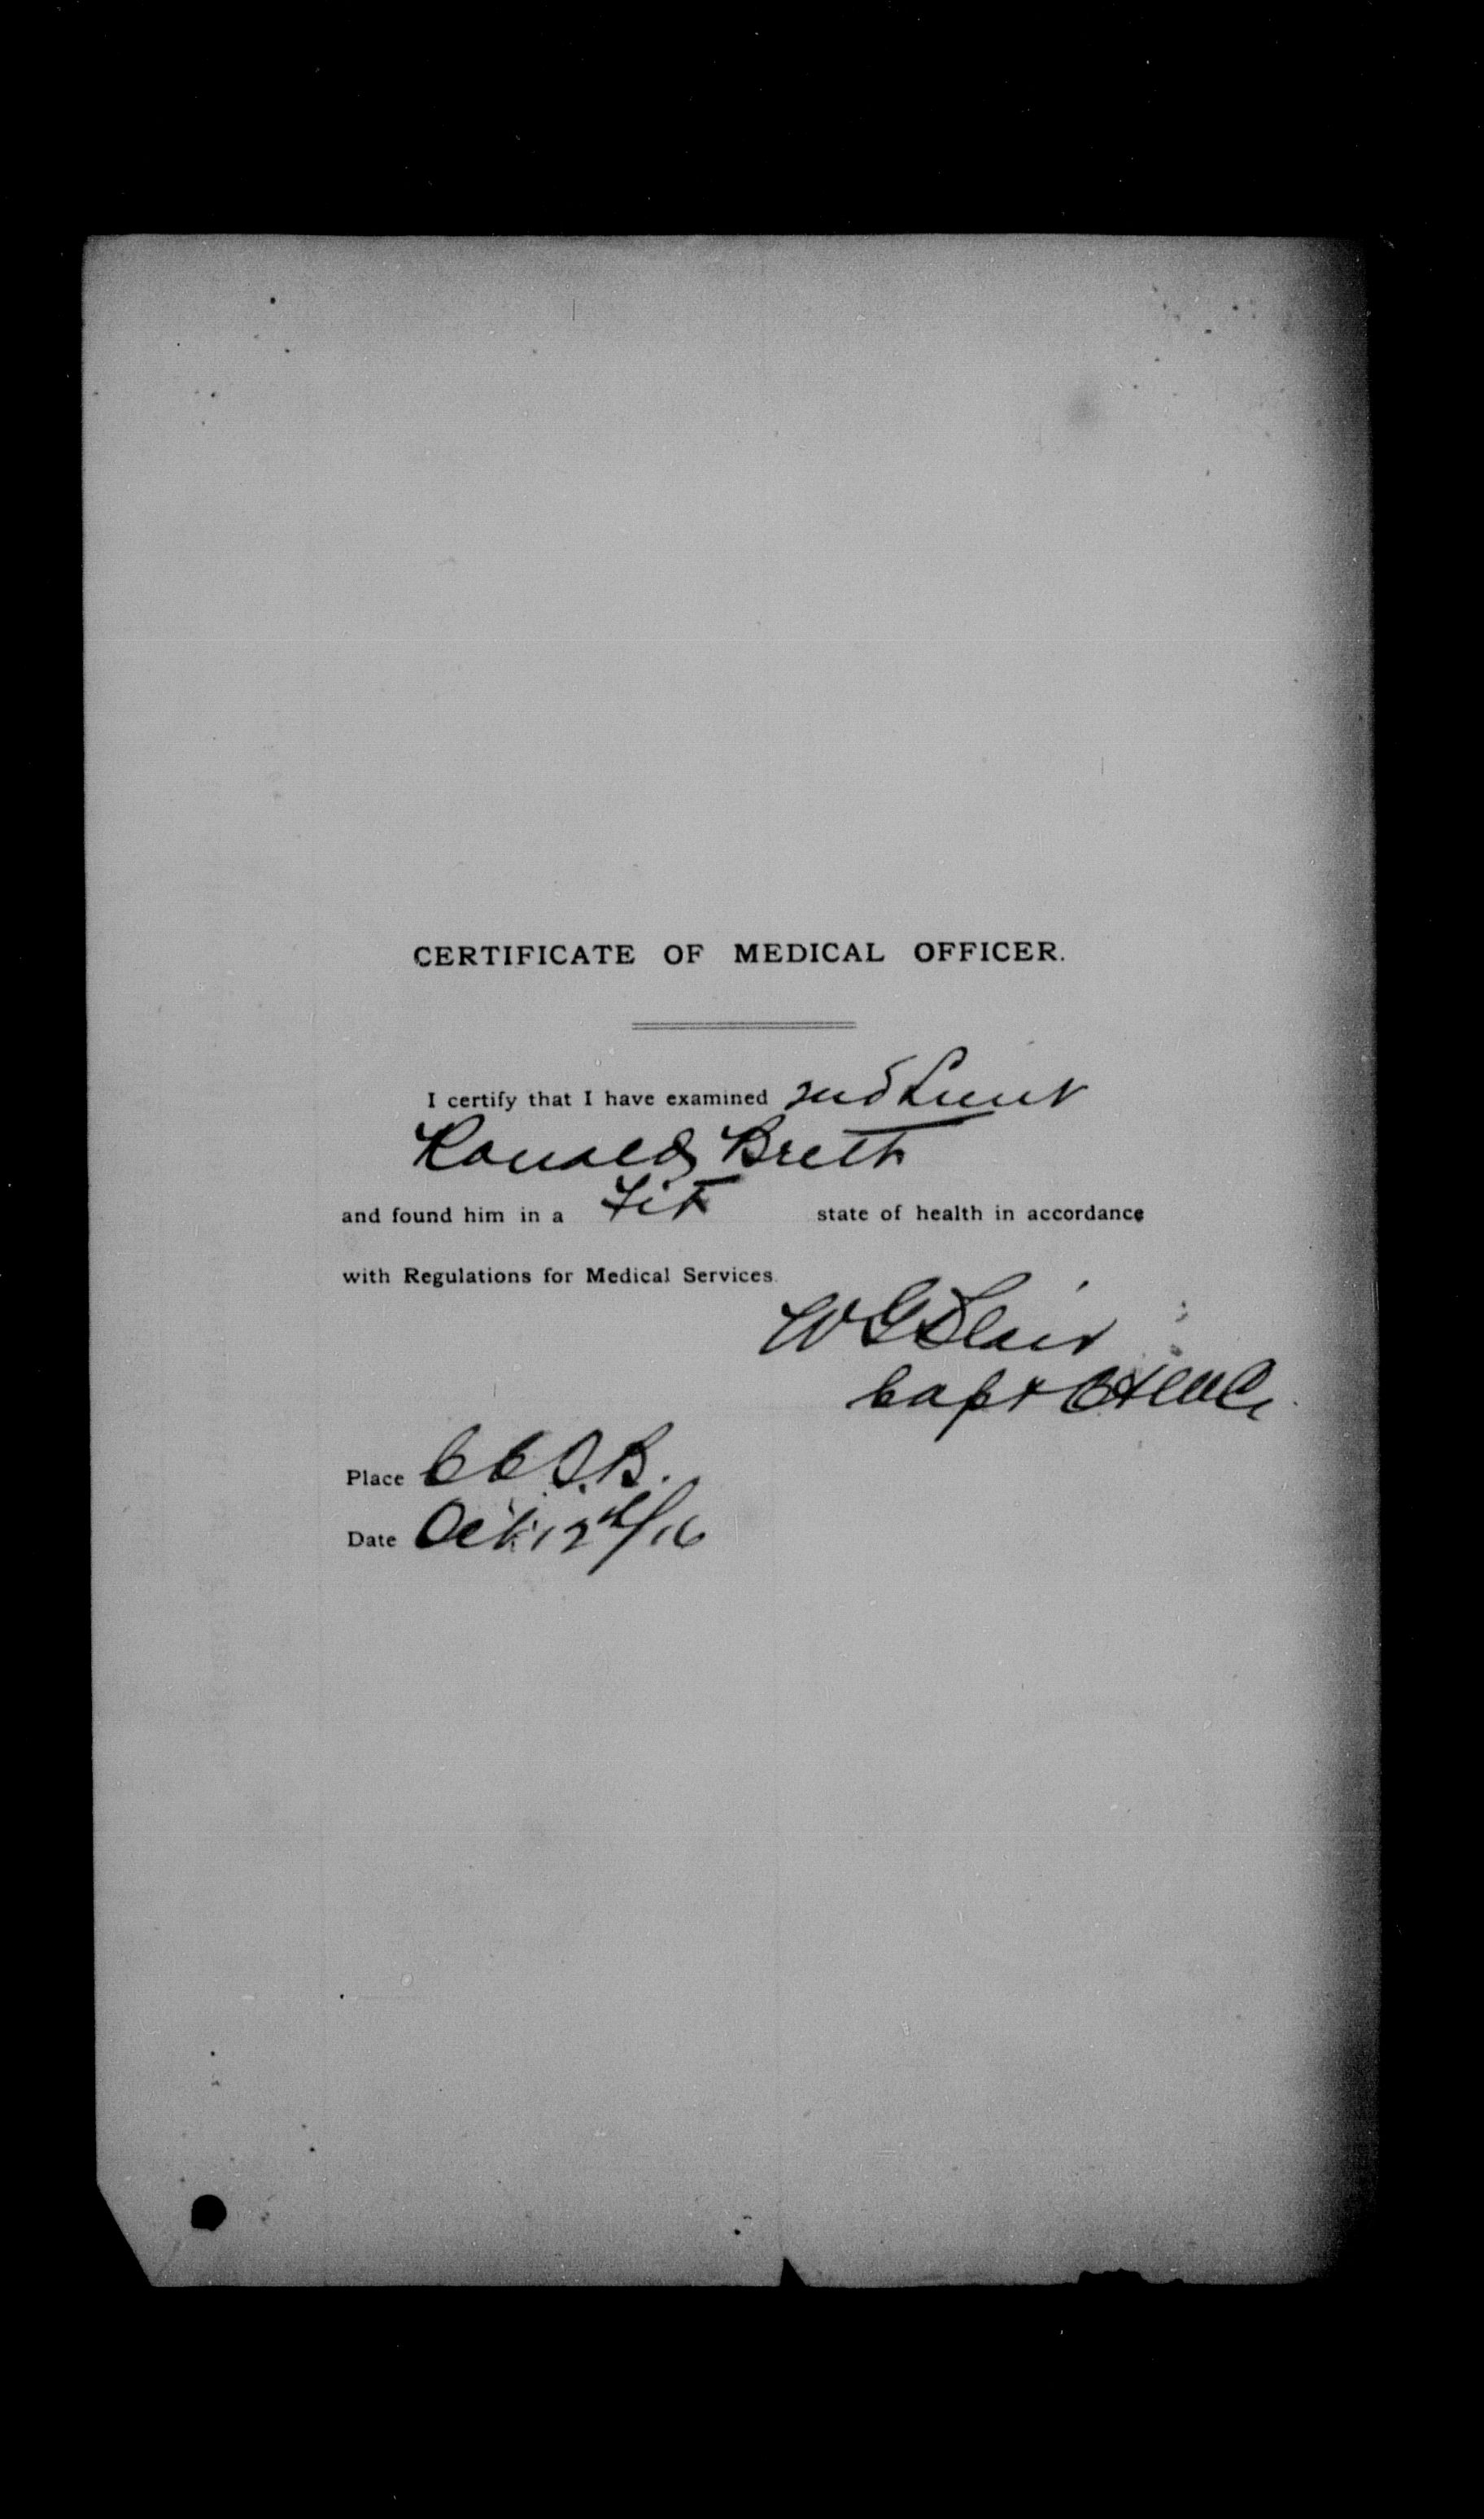 CERTIFICATE OF MEDICAL OFFICER.
I certify that I have examined 2nd Lieut
Ronald Breth
and found him in a Fit state of health in accordance
with Regulations for Medical Services.
W G Blair
Capt CAMC
Place C C D. B.
Date Oct. 12th/16